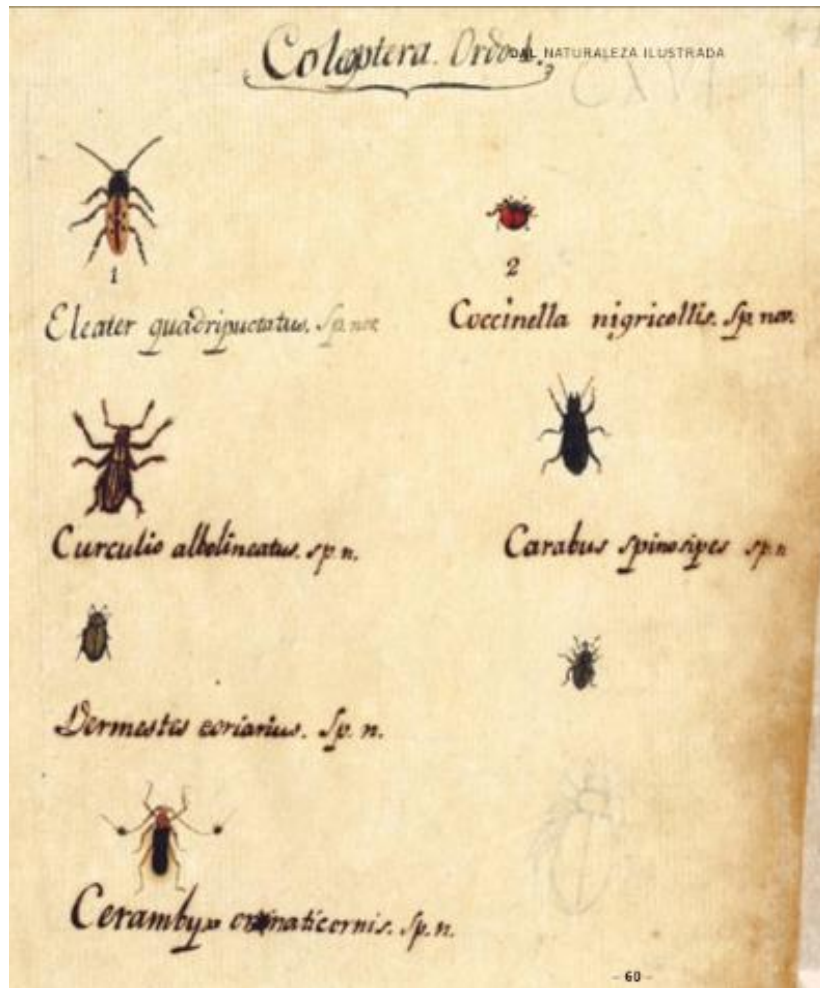 Coleoptera. Ordo 1.
DAL NATURALEZA ILUSTRADA
1
2
Eleater quadripuctatus. Sp. nov.
Coccinella nigricollis. Sp. nov.
Curculio albolineatus. sp. n.
Carabus spinosipes sp. n
Dermestes coriarius. Sp. n.
Cerambyx ornaticornis. Sp. n.
- 60 -